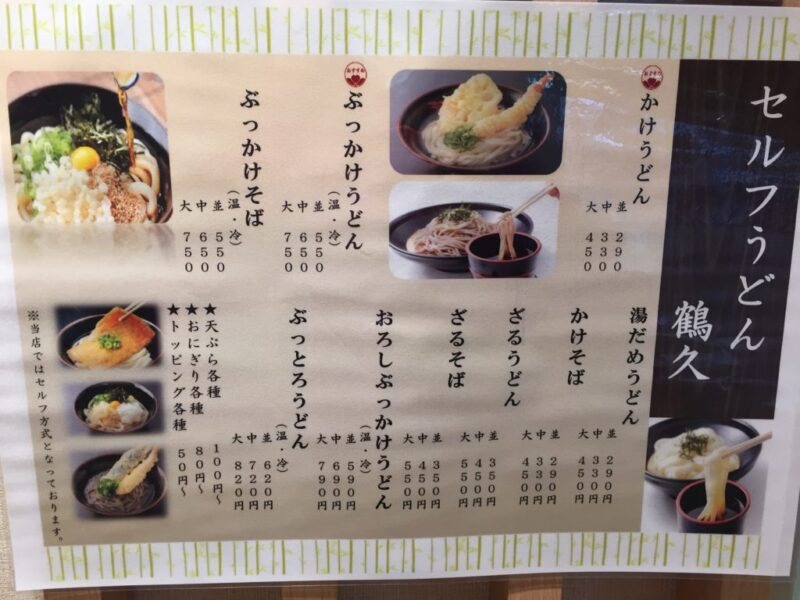 セルフうどん
鶴久
おすすめ
かけうどん
並 290
中 330
大 450
おすすめ
ぶっかけうどん
(温・冷)
並 550
中 650
大 750
ぶっかけそば
(温・冷)
並 550
中 650
大 750
湯だめうどん
並 290円
中 330円
大 450円
かけそば
並 290円
中 330円
大 450円
ざるうどん
並 350円
中 450円
大 550円
ざるそば
並 350円
中 450円
大 550円
おろしぶっかけうどん
(温・冷)
並 590円
中 690円
大 790円
ぶっとろうどん
(温・冷)
並 620円
中 720円
大 820円
★天ぷら各種 100円～
★おにぎり各種 80円～
★トッピング各種 50円～
※当店ではセルフ方式となっております。